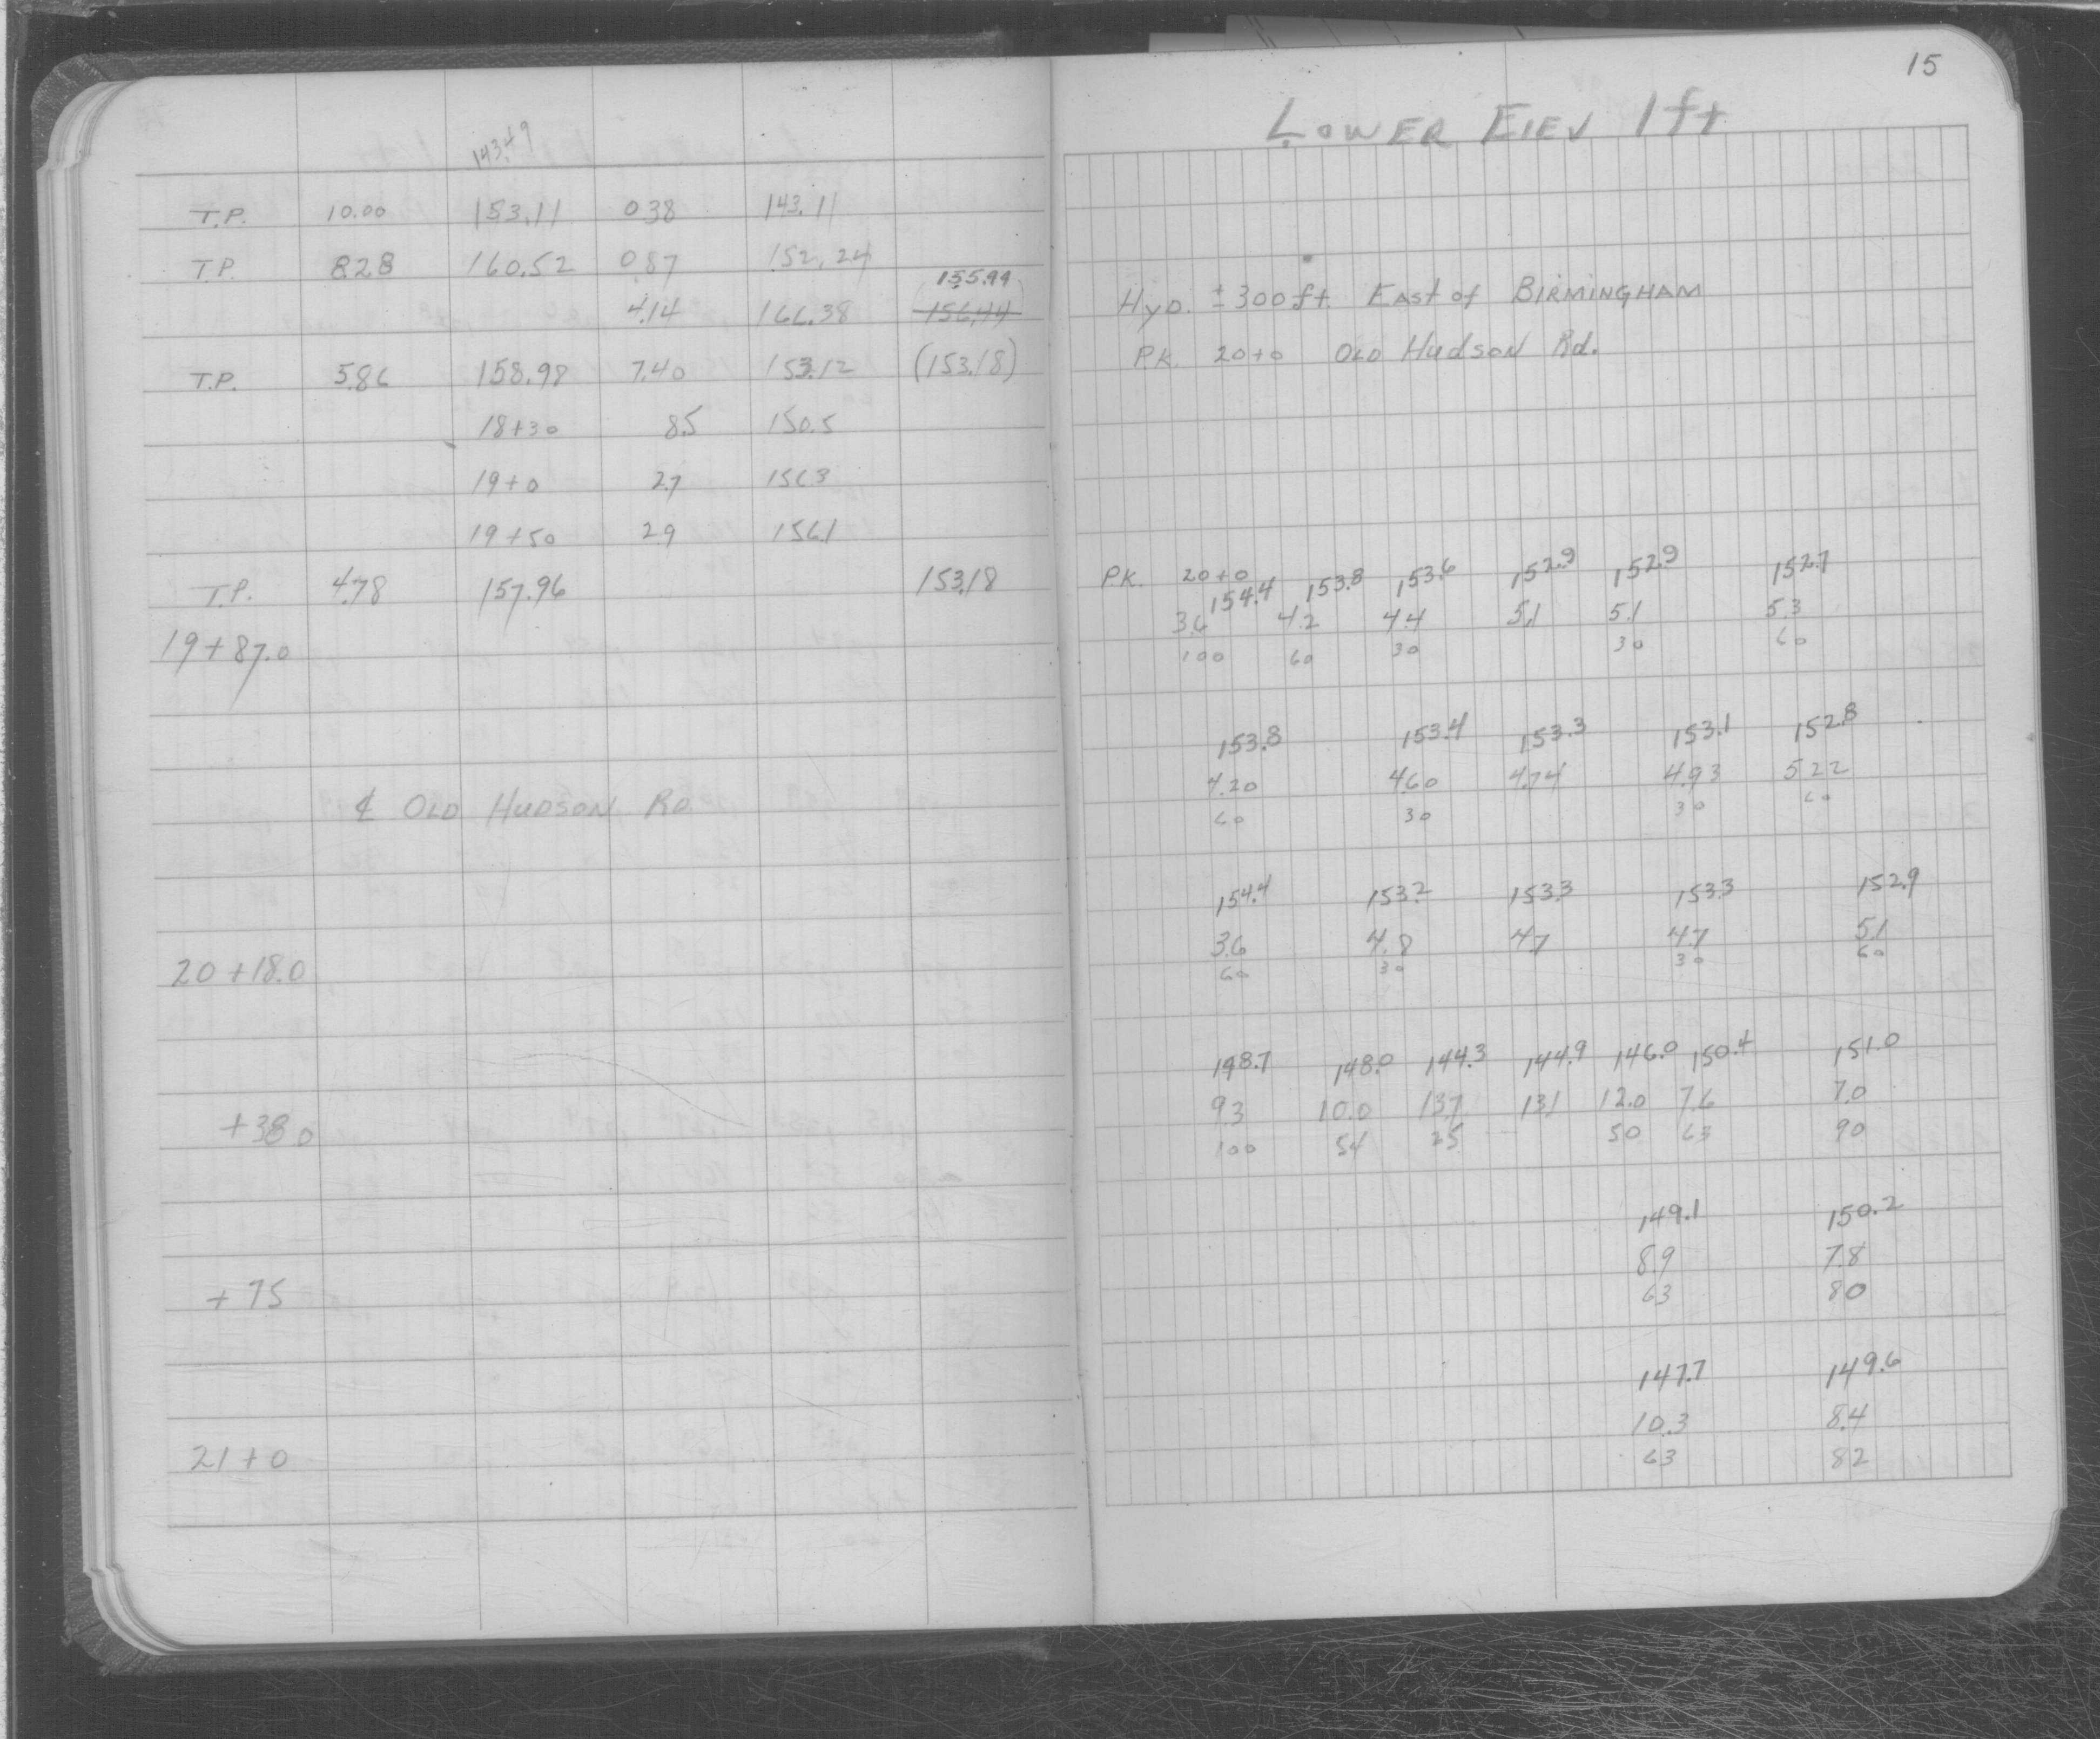 143.49
T.P. 10.00 153.11 0.38 143.11
T.P. 8.28 160.52 0.87 152.24
155.94
4.14 166.38 156.44
T.P. 5.86 158.98 7.40 153.12 (153.18)
18+30 8.5 150.5
19+0 2.7 156.3
19+50 2.9 156.1
T.P. 4.78 157.96 153.18
19+87.0
₵ OLD HUDSON RD
20+18.0
+38.0
+75
21+0
15
LOWER ELEV 1ft
HYD. ±300ft. EAST of BIRMINGHAM
P.K. 20+0 OLD HUDSON Rd.
P.K. 20+0
154.4 153.8 153.6 152.9 152.9 152.7
3.6 4.2 4.4 5.1 5.1 5.3
100 60 30 30 60
153.8 153.4 153.3 153.1 152.8
4.20 4.60 4.74 4.93 5.22
60 30 30 60
154.4 153.2 153.3 153.3 152.9
3.6 4.8 4.7 4.7 5.1
60 30 30 60
148.7 148.0 144.3 144.9 146.0 150.4 151.0
9.3 10.0 13.7 13.1 12.0 7.6 7.0
100 54 25 50 63 90
149.1 150.2
8.9 7.8
63 80
147.7 149.6
10.3 8.4
63 82